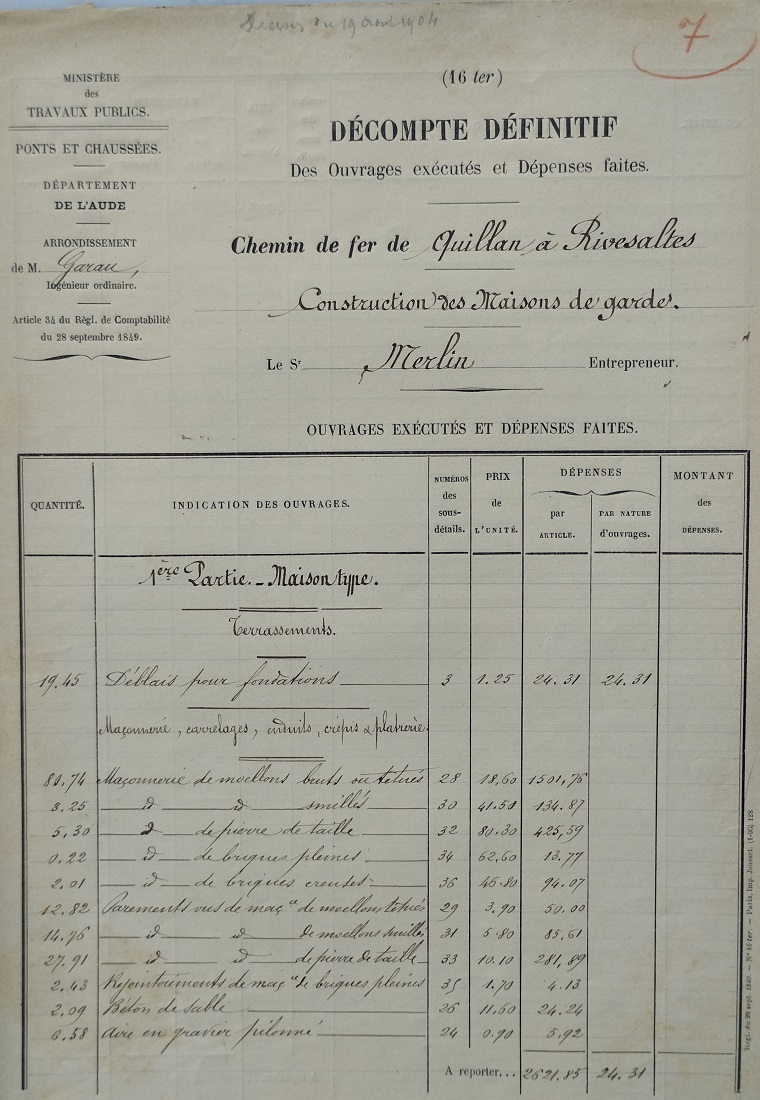 Décision du 19 août 1904
7
MINISTÈRE
des
TRAVAUX PUBLICS.
PONTS ET CHAUSSÉES.
DÉPARTEMENT
DE L'AUDE
ARRONDISSEMENT
de M. Garau,
Ingénieur ordinaire.
Article 34 du Règl. de Comptabilité
du 28 septembre 1849.
(16 ter)
DÉCOMPTE DÉFINITIF
Des Ouvrages exécutés et Dépenses faites.
Chemin de fer de Quillan à Rivesaltes
Construction des Maisons de gardes.
Le Sr Merlin Entrepreneur.
OUVRAGES EXÉCUTÉS ET DÉPENSES FAITES.
QUANTITÉ. INDICATION DES OUVRAGES. NUMÉROS des sous-détails. PRIX de L'UNITÉ. DÉPENSES par ARTICLE. PAR NATURE d'ouvrages. MONTANT des DÉPENSES.
1ère Partie. - Maison type.
Terrassements.
19.45 Déblais pour fondations 3 1.25 24.31 24.31
Maçonnerie, carrelages, enduits, crépis & platrerie.
80.74 Maçonnerie de moellons bruts ou tetués 28 18,60 1501,76
3.25 d d smillés 30 41.50 134.87
5,30 d de pierre de taille 32 80.30 425,59
0.22 id de briques pleines 34 62,60 13.77
2.01 id de briques creuses 36 46.80 94.07
12.82 Parements vus de maçie de moellons tetués 29 3.90 50.00
14.76 id id de moellons smillés 31 5.80 85,61
27.91 id id de pierre de taille 33 10.10 281,89
2.43 Rejointoiements de maçie de briques pleines 35 1.70 4.13
2.09 Béton de sable 26 11.60 24.24
6.58 Aire en gravier pilonné 24 0.90 5.92
A reporter... 2621.85 24.31
Règl. du 28 sept. 1849. — No 16 ter. — Paris, Imp. Jousset. (1-03) 128